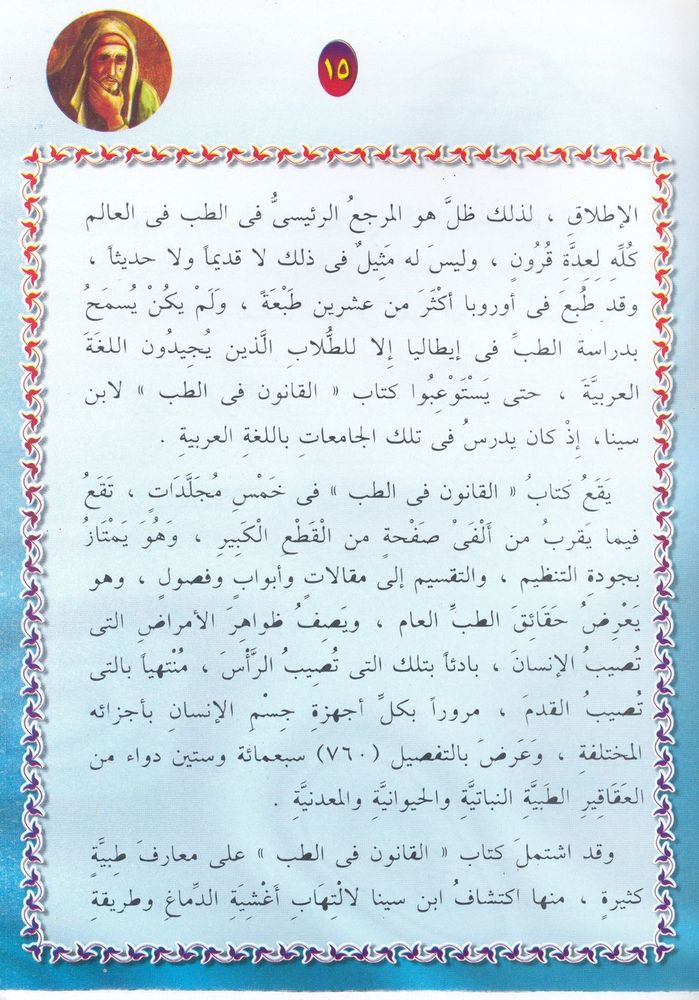 ١٥
الإطلاقِ ، لذلك ظلَّ هو المرجعُ الرئيسىُّ فى الطب فى العالم
كُلِّهِ لِعِدَّة قُرُونٍ ، وليسَ له مَثِيلٌ فى ذلك لا قديماً ولا حديثاً ،
وقد طُبعَ فى أوروبا أكْثَرَ من عشرين طَبْعَةً ، ولَمْ يكُنْ يُسمَحُ
بدراسة الطبِّ فى إيطاليا إلا للطُّلابِ الَّذين يُجِيدُون اللغةَ
العربيَّةَ ، حتى يَسْتَوْعِبُوا كتاب « القانون فى الطب » لابن
سينا، إذْ كان يدرسُ فى تلك الجامعاتِ باللغةِ العربيةِ .
يَقَعُ كتابُ « القانون فى الطب » فى خَمْسِ مُجلَّدَاتٍ ، تَقَعُ
فيما يقربُ من أَلْفَىْ صَفْحةٍ من الْقَطْعِ الْكَبِيرِ ، وَهُوَ يَمْتَازُ
بجودةِ التنظيم ، والتقسيم إلى مقالاتٍ وأبوابٍ وفصولٍ ، وهو
يَعْرِضُ حقَائِقَ الطبِّ العام ، ويَصِفُ ظواهِرَ الأمراضِ التى
تُصيبُ الإنسانَ ، بادئاً بتلك التى تُصِيبُ الرَّأْسَ ، مُنْتهياً بالتى
تُصيبُ القدمَ ، مروراً بكلِّ أجهزةِ جِسْمِ الإنسانِ بأجزائه
المختلفةِ ، وَعَرضَ بالتفصيل (٧٦٠) سبعمائة وستين دواء من
العَقَاقِيرِ الطَبيَّةِ النباتيَّةِ والحيوانيَّةِ والمعدنيَّةِ .
وقد اشتملَ كتاب « القانون فى الطب » على معارفَ طِبيَّةٍ
كثيرةٍ ، منها اكتشافُ ابن سينا لالْتِهَابِ أَغْشيَةِ الدِّماغِ وطريقةِ